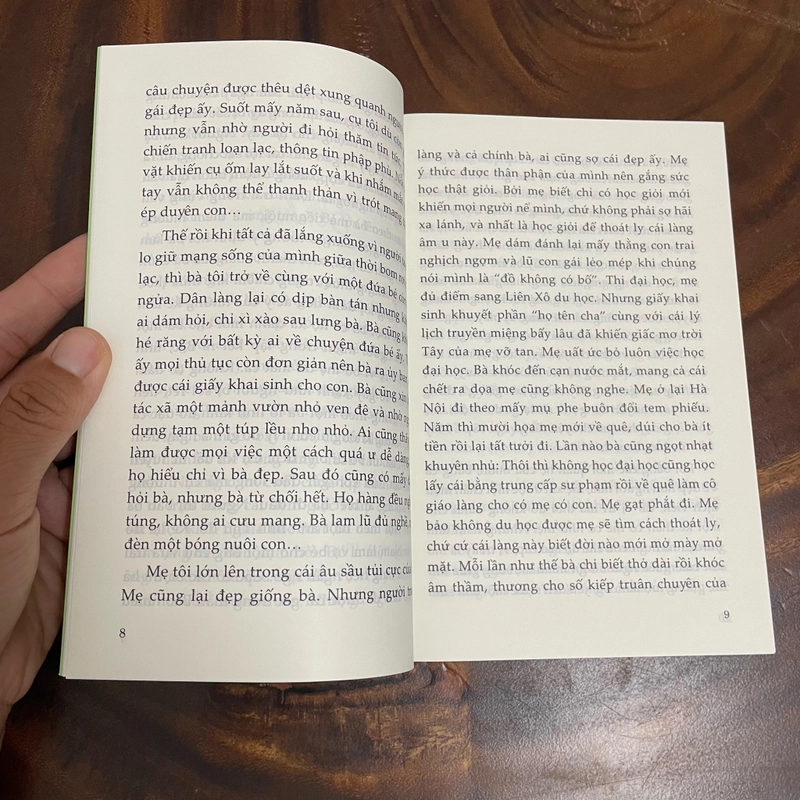 câu chuyện được thêu dệt xung quanh
gái đẹp ấy. Suốt mấy năm sau, cụ tôi dù
nhưng vẫn nhờ người đi hỏi thăm tin
chiến tranh loạn lạc, thông tin phập phù.
vặt khiến cụ ốm lay lắt suốt và khi nhắm
tay vẫn không thể thanh thản vì trót mang
ép duyên con...
Thế rồi khi tất cả đã lắng xuống vì người
lo giữ mạng sống của mình giữa thời bom
lạc, thì bà tôi trở về cùng với một đứa bé
ngửa. Dân làng lại có dịp bàn tán nhưng
ai dám hỏi, chỉ xì xào sau lưng bà. Bà cũng
hé răng với bất kỳ ai về chuyện đứa bé ấy.
ấy mọi thủ tục còn đơn giản nên bà ra ủy
được cái giấy khai sinh cho con. Bà cũng xin
tác xã một mảnh vườn nhỏ ven đê và nhờ
dựng tạm một túp lều nho nhỏ. Ai cũng
làm được mọi việc một cách quá ư dễ dàng
họ hiểu chỉ vì bà đẹp. Sau đó cũng có mấy
hỏi bà, nhưng bà từ chối hết. Họ hàng đều
túng, không ai cưu mang. Bà lam lũ đủ nghề,
đèn một bóng nuôi con...
Mẹ tôi lớn lên trong cái âu sầu tủi cực
Mẹ cũng lại đẹp giống bà. Nhưng người
8
làng và cả chính bà, ai cũng sợ cái đẹp ấy. Mẹ
ý thức được thân phận của mình nên gắng sức
học thật giỏi. Bởi mẹ biết chỉ có học giỏi mới
khiến mọi người nể mình, chứ không phải sợ hãi
xa lánh, và nhất là học giỏi để thoát ly cái làng
âm u này. Mẹ dám đánh lại mấy thằng con trai
nghịch ngợm và lũ con gái lẻo mép khi chúng
nói mình là “đồ không có bố”. Thi đại học, mẹ
đủ điểm sang Liên Xô du học. Nhưng giấy khai
sinh khuyết phần “họ tên cha” cùng với cái lý
lịch truyền miệng bấy lâu đã khiến giấc mơ trời
Tây của mẹ vỡ tan. Mẹ uất ức bỏ luôn việc học
đại học. Bà khóc đến cạn nước mắt, mang cả cái
chết ra dọa mẹ cũng không nghe. Mẹ ở lại Hà
Nội đi theo mấy mụ phe buôn đổi tem phiếu.
Năm thì mười họa mẹ mới về quê, dúi cho bà ít
tiền rồi lại tất tưởi đi. Lần nào bà cũng ngọt nhạt
khuyên nhủ: Thôi thì không học đại học cũng học
lấy cái bằng trung cấp sư phạm rồi về quê làm cô
giáo làng cho có mẹ có con. Mẹ gạt phắt đi. Mẹ
bảo không du học được mẹ sẽ tìm cách thoát ly,
chứ cứ cái làng này biết đời nào mới mở mày mở
mặt. Mỗi lần như thế bà chỉ biết thở dài rồi khóc
âm thầm, thương cho số kiếp truân chuyên của
9